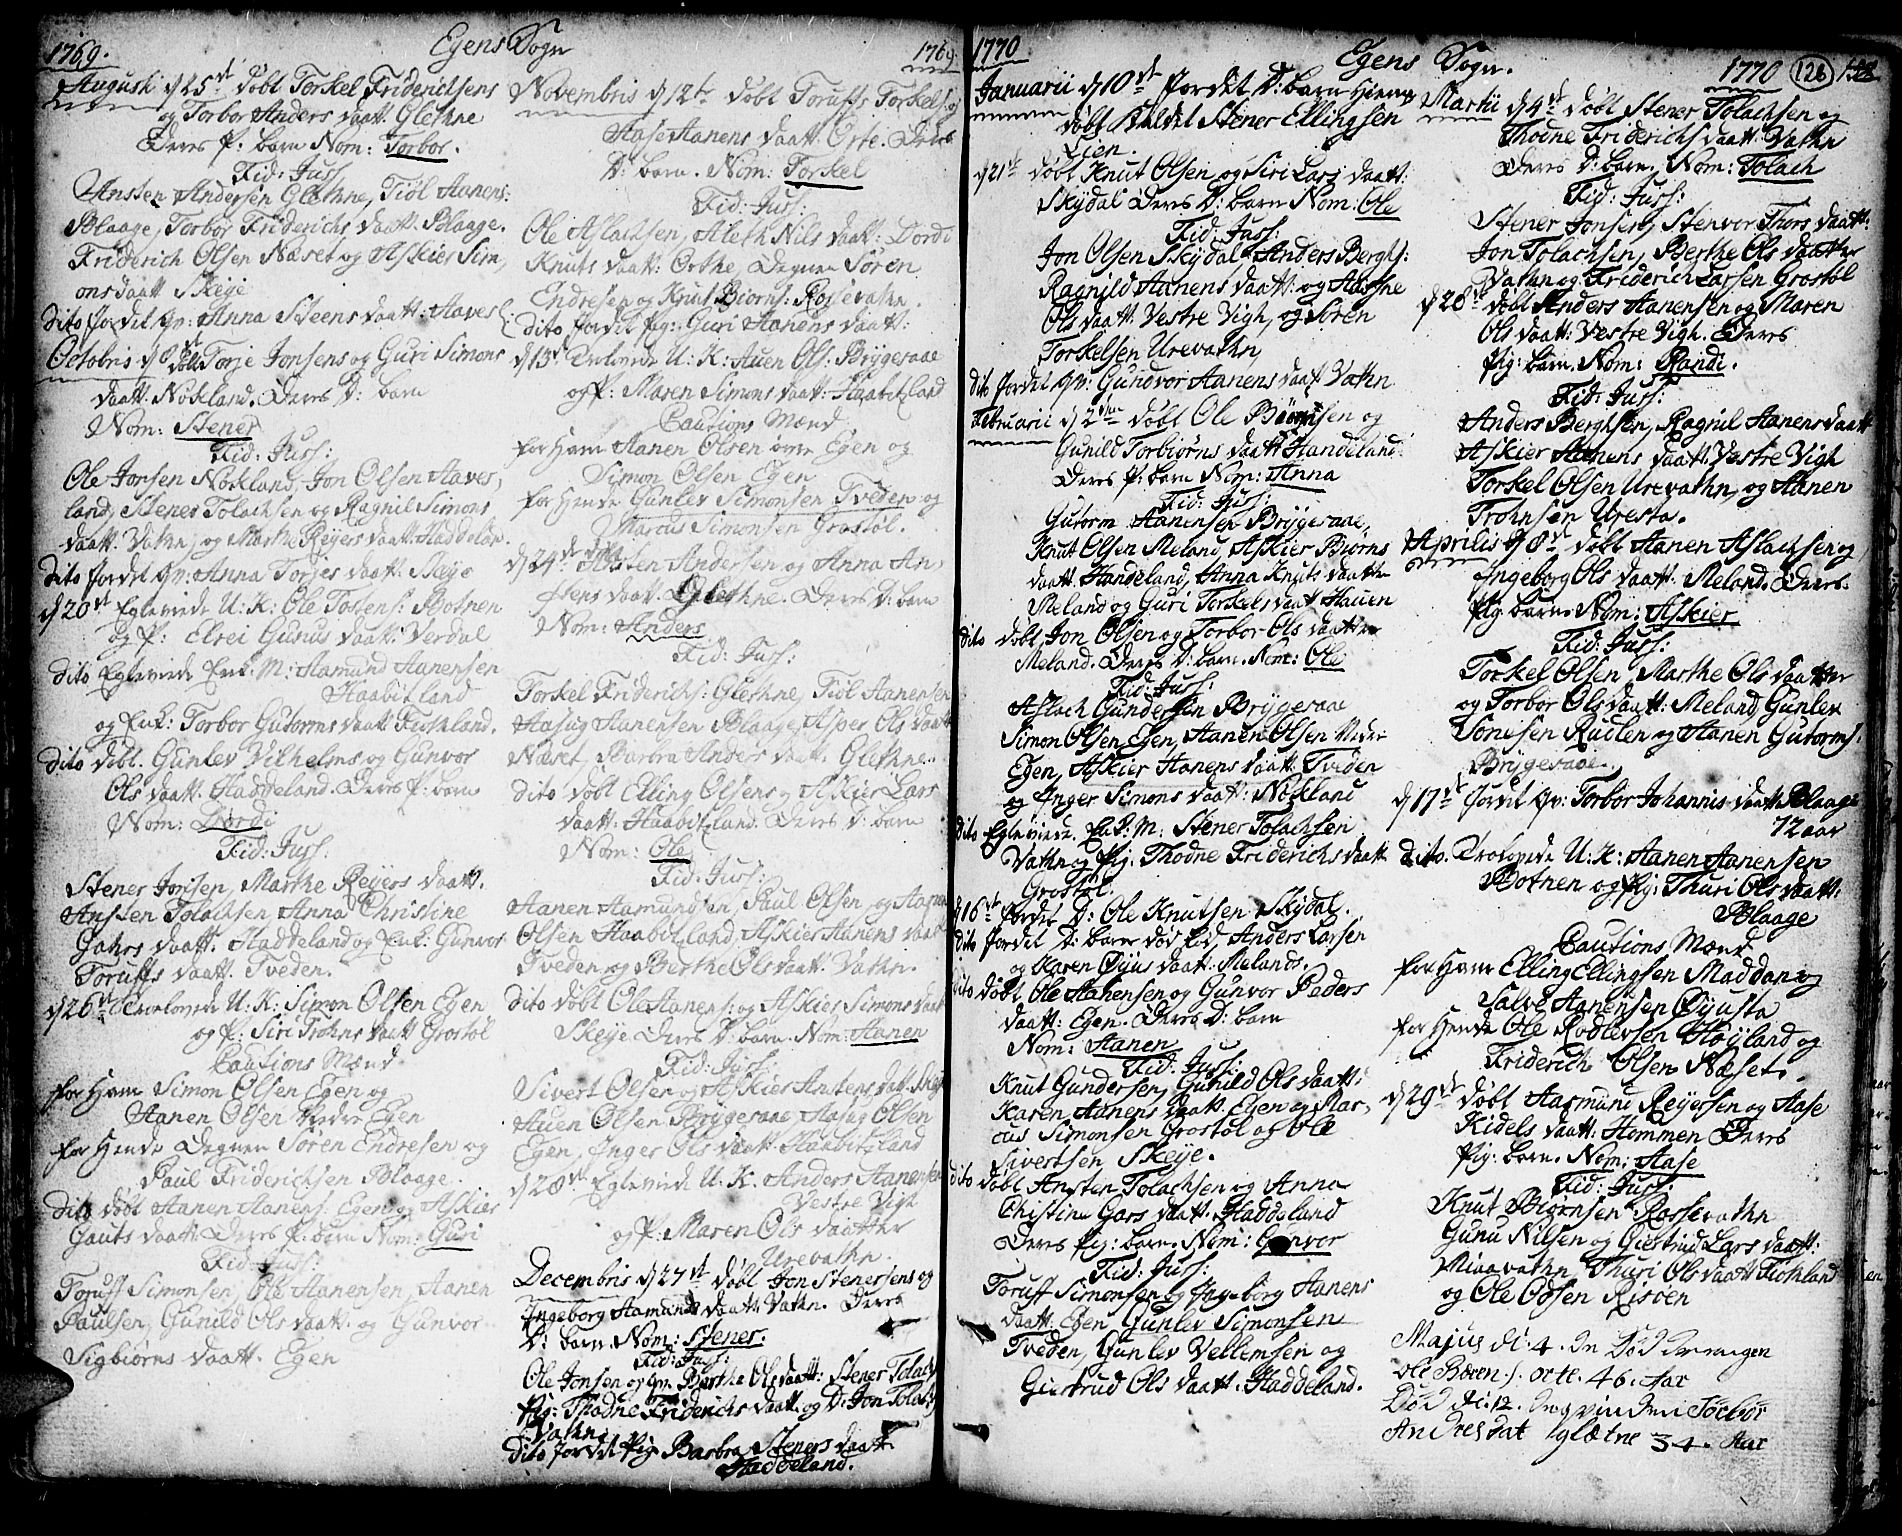 1769. Egens Sogn 1769.
Augusti d 25de døbt Torkel Friderichsens
og Torbor Anders daatt. Glethne
Deres P: barn Nom: Torbor.
Fid: Juss:
Ansten Andersen Glethne, Tiøl Aanens:
Blaage, Torbor Friderichs daatt. Blaage.
Friderich Olsen Næset og Askier Sim,
ons daatt Skeye
dito jordet Qv: Anna Steens daatt: Aavesl:
Octobris d 8de døbt Torje Jonsens og Guri Simons
daatt. Nokland. Deres D: barn
Nom: Stener
Fid: Juss:
Ole Jonsen Nokland, Jon Olsen Aaves,
land, Stener Tolachsen og Ragnil Simons
daatt. Vathn, og Marthe Reyers daatt. Haddelan.
dito jordet Qv: Anna Torjes daatt: Skeye
d 20de Egteviede U: K: Ole Tostens: Botnen
og P: Elsei Gunus daatt: Verdal
dito Egteviede Enk. M: Aamund Aanensen
Haabitland
og Enk: Torbor Gutorms daatt. Fiskland.
dito døbt. Gunlev Vilhelms og Gunvor
Ols daatt. Haddeland. Deres P: barn
Nom: Dordi
Fid: Juss:
Stener Jonsen, Marthe Reyers daatt.
Ansten Tolachsen Anna Christine
Gahrs daatt. Haddeland og Enk: Gunvor
Toruffs daatt. Tveden.
d 26de Trolovede U: K: Simon Olsen Egen
og P: Siri Trohns daatt Grostøl
Cautions Mænd
for Ham Simon Olsen Egen og
Aanen Olsen Nedre Egen
for Hende Degnen Søren Endresen og
Paul Friderichsen Blaage.
dito døbt Aanen Aanens: Egen og Askier
Gauts daatt Deres P: barn Nom: Guri
Fid: Juss:
Toruff Simonsen, Ole Aanensen, Aanen
Paulsen, Gunild Ols daatt. og Gunvor
Sigbiørns daatt. Egen
Novembris d 12te døbt Toruffs Torkels: og
Aase Aanens daatt. Orte. Deres
D: barn. Nom: Torkel
Fid: Juss:
Ole Aslachsen, Aleth Nils daatt: Dordi
Knuts daatt: Orthe, Degnen Søren
Endresen og Knut Biorns: Rossevathn.
dito jordet Pig: Guri Aanens daatt:
d 13de Trolovede U: K: Auen Ols: Brygesaae
og P: Maren Simons daatt: Haabitland
Cautions Mænd
for Ham Aanen Olsen øvre Egen og
Simon Olsen Egen
for Hende Gunlev Simonsen Tveden og
Marcus Simonsen Grostøl.
d 24de døbt Ansten Andersen og Anna An,
stens daatt. Glethne. Deres D: barn
Nom: Anders
Fid: Juss:
Torkel Friderichs: Glethne, Tiøl Aanensen
Aasug Aanensen Blaage, Asper Ols daatt
Næset, Barbra Anders daatt. Glethne.
dito døbt Elling Olsens og Askier Lars
daatt: Haabitland. Deres D: barn
Nom: Ole
Fid: Juss:
Aanen Aamundsen, Paul Olsen, og Aagne
Olsen Haabitland, Askier Aanens daatt
Tveden og Berthe Ols daatt. Vathn.
dito døbt Ole Aanens: og Askier Simons daatt
Skeye Deres D: barn. Nom: Aanen
Fid: Juss:
Sivert Olsen og Askier Anstens datt. Skeye
Auen Olsen Brygesaae, Aasug Olsen
Egen, Inger Ols daatt. Haabitland
d 28de Egteviede U. K. Anders Aanensen
Vestre Vigh
og P. Maren Ols daatter
Urevathn.
Decembris d 27de døbt Jon Stenersens og
Ingeborg Aamunds daatt. Vathn. Deres
D: barn. Nom: Stener.
Fid: Juss:
Ole Jonsen og Qv. Berthe Ols daatt: Stener Tolachs:
Pig: Thodne Friderichs daatt. og D: Jon Tolachs:
Vathn.
Dito jordet Pig Barbra Steners daatt.
Haddeland.
1770 Egens Sogn. 1770 126
Januarii d 10de jordet D: barn Hiemme
døbt Kaldet Stener Ellingsen
Lien.
d 21de døbt Knut Olsen og Siri Lars daatt:
Skydal Deres D: barn Nom: Ole
Fid: Juss:
Jon Olsen Skydal Anders Berghs:
Ragnild Aanens daatt: og Aassne
Ols daatt. Vestre Vigh, og Søren
Torkelsen Urevathn,
dito jordet Qv: Gundvor Aanens daatt Vathn
Februarii d 2den døbt Ole Biørnsen og
Gunild Torbiørns daatt Handeland
Deres P: barn Nom: Anna
Fid: Juss:
Gutorm Aanensen Brygesaae,
Knut Olsen Meland, Askier Biørns
daatt. Handeland, Anna Knuts daatter
Meland og Guri Torkels daatt Hauen
dito døbt Jon Olsen og Torbor Ols daatter
Meland. Deres D: barn. Nom: Ole
Fid: Juss:
Aslach Gundersen Brygesaae
Simon Olsen Egen, Aanen Olsen Nedre
Egen, Askier Aanens daatt: Tveden
og Inger Simons daatt: Nokland
dito Egteviede. Enk: M: Stener Tolachsen
Vathn og Pig: Thodne Friderichs daatt
Grostøl.
d 16de jordet D: Ole Knutsen Skydal.
dito jordet D: barn død fød, Anders Larsen
og Karen Oyus daatt: Meland.
dito døbt Ole Aanensen og Gunvor Peders
daatt: Egen. Deres D: barn
Nom: Aanen
Fid: Juss:
Knut Gundersen, Gunild Ols daatt:
Karen Aanens daatt. Egen og Mar,
cus Simonsen Grostøl og Ole
Sivertsen Skeye.
dito døbt Ansten Tolachsen og Anna
Christine Gars daatt. Haddeland
Deres Pig: barn. Nom: Gunvor
Fid: Juss:
Toruff Simonsen og Ingeborg Aanens
daatt: Egen Gunlev Simonsen
Tveden, Gunlev Vellemsen og
Giertrud Ols daatt. Haddeland.
Martii d 4de døbt Stener Tolachsen og
Thodne Friderichs daatt: Vathn
Deres D: barn, Nom: Tolach
Fid: Juss:
Stener Jonsen, Stenvor Thors daatt.
Jon Tolachsen, Berthe Ols daatter
Vathn og Friderich Larsen Grostøl
d 28de døbt Anders Aanensen og Maren
Ols daatt: Vestre Vigh. Deres
Pig: barn. Nom: Randi.
Fid: Juss:
Anders Berghsen, Ragnil Aanens daatt
Askier Aanens daatt. Vestre Vigh
Torkel Olsen Urevathn, og Aanen
Trohnsen Uresta.
Aprilis d 8de døbt Aanen Aslachsen og
Ingeborg Ols daatt. Meland. Deres
Pig barn. Nom: Askier
Fid: Juss:
Torkel Olsen, Marthe Ols daatter
og Torbor Ols daatt: Meland Gunlev
Tonesen Rudlen og Aanen Gutorms:
Brygesaae.
d 17de jordet Qv: Torbor Johannis daatt. Blaage
72 aar
dito. Trolovede U: K: Aanen Aanensen
Botnen og Pig: Thuri Ols daatt.
Blaage
Cautions Mænd
for Ham Elling Ellingsen Maddan og
Salve Aanensen Øyusta
for Hende Ole Rodlevsen Høyland og
Friderich Olsen Næset.
d 29de døbt Aasmund Reyersen og Aase
Kidels daatt: Hommen Deres
Pig: barn. Nom: Aase
Fid: Juss:
Knut Biørnsen Rossevathn
Gunu Nilsen og Giertrud Lars daatt:
Miaavathn, Thuri Ols daatt. Fiskland
og Ole Odsen Risøen
Majus di: 4. Er Død
Ole orte 46. Aar
Død di: 12. Torbør
Andresdat glætne 34. Aar